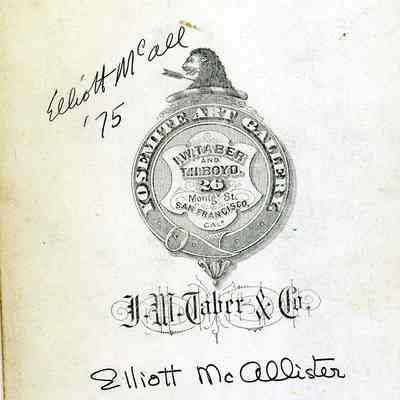 Elliott McAll
'75
YOSEMITE ART GALLERY
I.W. TABER
AND
T.H. BOYD.
26
Montg'y St.
SAN FRANCISCO,
CAL.
I. W. Taber & Co.
Elliott McAllister